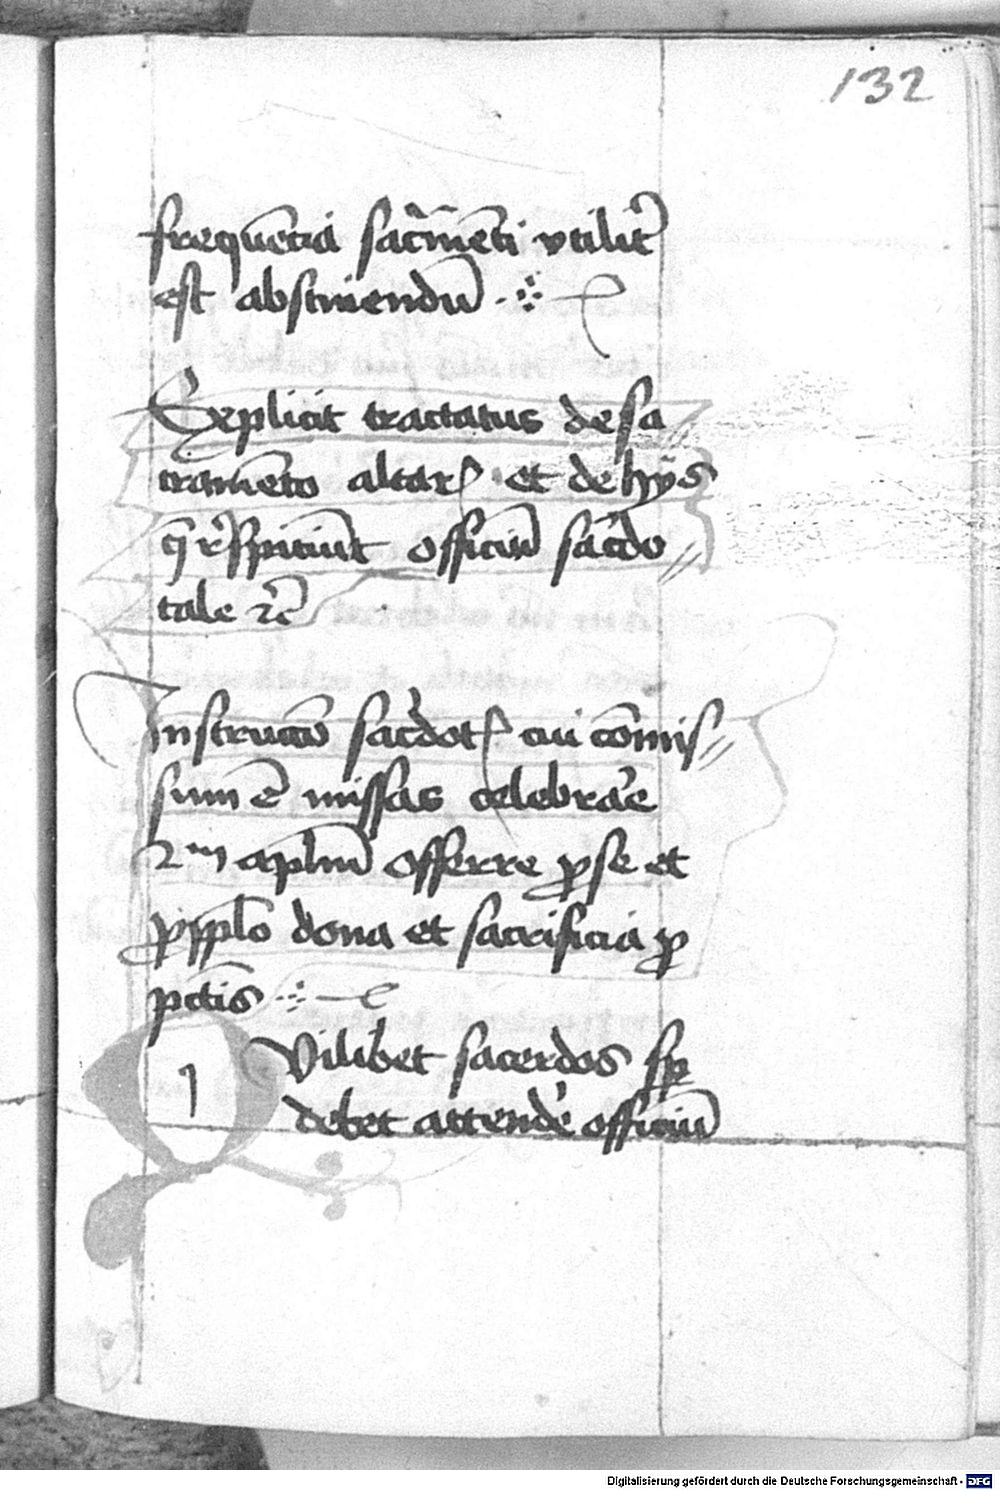 132
frequētia sac̄mēti vtilit̄
est abstinendū
Explicit tractatus de sa
cramēto altarꝭ et de hijs
q̄ r̄spiciūt officiū sac̄do
tale ⁊c̄
Instructio sac̄dotꝭ cui cōmis
sum ē missas celebrar̄e
2m apl̄m offerre ꝓ se et
ꝓ ppl̄o dona et sacrificia ꝓ
pctīs
Quilibet sacerdos sꝑ
debet attendē officiū
Digitalisierung gefördert durch die Deutsche Forschungsgemeinschaft - DFG